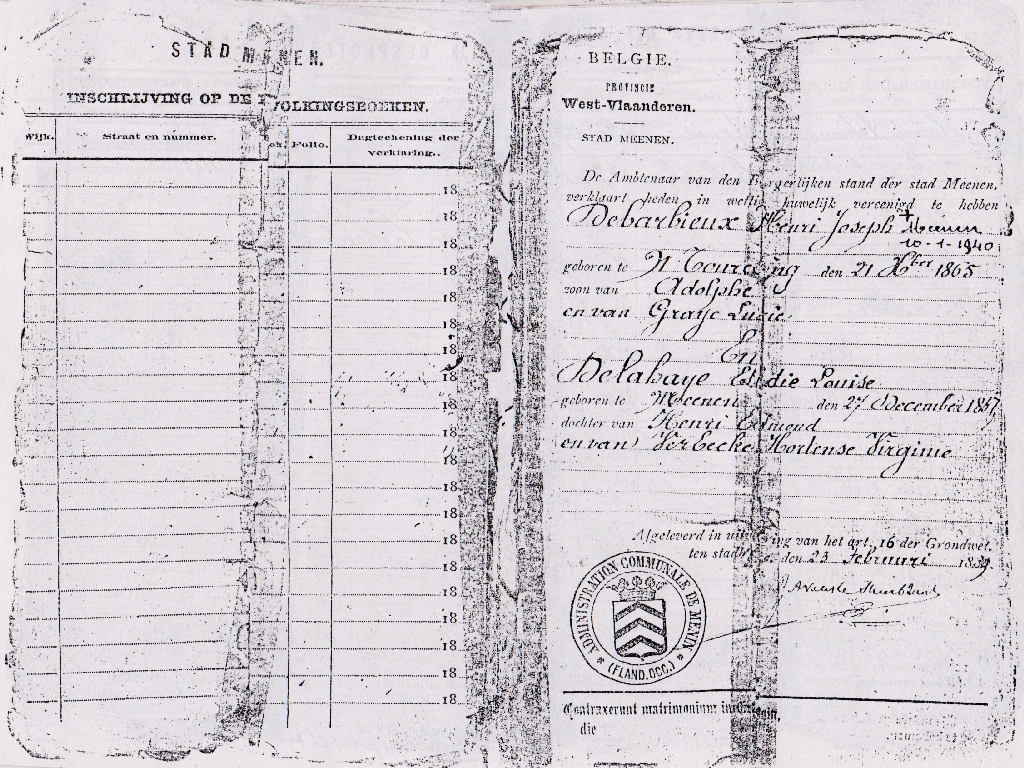 STAD MEENEN.
INSCHRIJVING OP DE BEVOLKINGSBOEKEN.
Wijk. Straat en nummer. Folio. Dagteekening der verklaring.
18
18
18
18
18
18
18
18
18
18
18
18
18
18
18
18
18
18
18
18
BELGIE.
PROVINCIE
West-Vlaanderen.
STAD MEENEN.
De Ambtenaar van den Burgerlijken stand der stad Meenen,
verklaart heden in wettig huwelijk vereenigd te hebben
Debarbieux Henri Joseph + Meenen
10-1-1940
geboren te Tourcoing den 21 Xber 1865
zoon van Adolphe
en van Lucie
En
Delahaye Elodie Louise
geboren te Meenen den 27 December
dochter van Henri Edmond
en van Verbecke Hortense Virginie
Afgeleverd in uitvoering van het art. 16 der Grondwet,
ten stadhuize den 23 februari 1889
ADMINISTRATION COMMUNALE DE MENIN
(FLAND. OCC.)
Contraxerunt matrimonium in
die